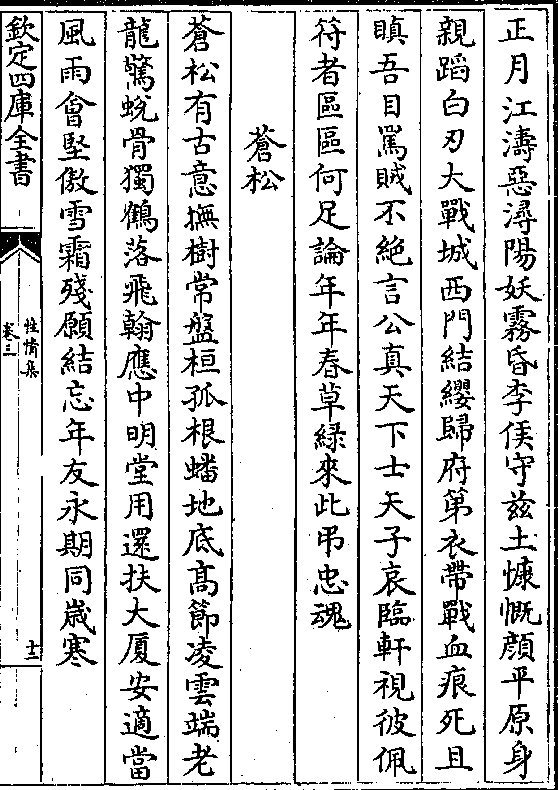 正月江濤惡潯陽妖霧昏李侯守兹土慷慨顔平原身
親蹈白刃大戰城西門結纓歸府第衣帶戰血痕死且
瞋吾目罵賊不絶言公真天下士天子哀臨軒視彼佩
符者區區何足論年年春草緑來此弔忠魂
蒼松
蒼松有古意撫樹常盤桓孤根蟠地底髙節凌雲端老
龍驚蛻骨獨鶴落飛翰應中明堂用還扶大厦安適當
風雨會堅傲雪霜殘願結忘年友永期同歲寒
欽定四庫全書
性情集
卷三
十二